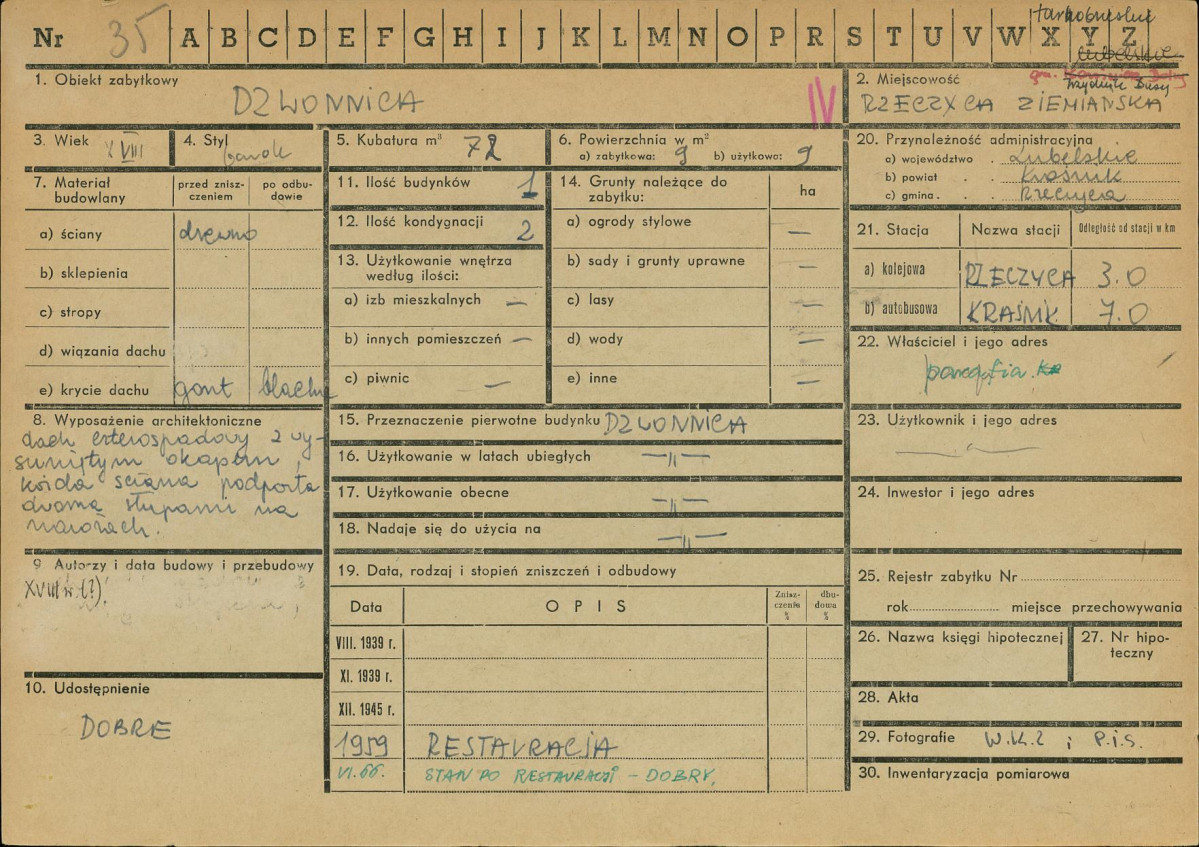 Nr 35 A B C D E F G H I J K L M N O P R S T U V W X Y Z
tarnobrzeskie
lubelskie
1. Obiekt zabytkowy
DZWONNICA
IV
2. Miejscowość
gm.
Trzydnik Duży
RZECZYCA ZIEMIAŃSKA
3. Wiek XVIII
4. Styl barok
5. Kubatura m³ 72
6. Powierzchnia w m²
a) zabytkowa: 9 b) użytkowo: 9
7. Materiał budowlany
przed zniszczeniem
po odbudowie
a) ściany drewno
b) sklepienia
c) stropy
d) wiązania dachu
e) krycie dachu gont blacha
8. Wyposażenie architektoniczne
dach czterospadowy z wy-
suniętym okapem,
każda ściana podparta
dwoma słupami na
narożach.
9. Autorzy i data budowy i przebudowy
XVIII w. (?)
10. Udostępnienie
DOBRE
11. Ilość budynków 1
12. Ilość kondygnacji 2
13. Użytkowanie wnętrza
według ilości:
a) izb mieszkalnych —
b) innych pomieszczeń —
c) piwnic —
14. Grunty należące do
zabytku:
ha
a) ogrody stylowe —
b) sady i grunty uprawne —
c) lasy —
d) wody —
e) inne —
15. Przeznaczenie pierwotne budynku DZWONNICA
16. Użytkowanie w latach ubiegłych —"—
17. Użytkowanie obecne —"—
18. Nadaje się do użycia na —"—
19. Data, rodzaj i stopień zniszczeń i odbudowy
Data OPIS Zniszczenia % dbudowa %
VIII. 1939 r.
XI. 1939 r.
XII. 1945 r.
1959 RESTAURACJA
VI.66. STAN PO RESTAURACJI – DOBRY,
20. Przynależność administracyjna
a) województwo . Lubelskie
b) powiat . . Kraśnik
c) gmina . . Rzeczyca
21. Stacja Nazwa stacji Odległość od stacji w km
a) kolejowa RZECZYCA 3.0
b) autobusowa KRAŚNIK 7.0
22. Właściciel i jego adres
parafia
23. Użytkownik i jego adres
—"—
24. Inwestor i jego adres
25. Rejestr zabytku Nr
rok miejsce przechowywania
26. Nazwa księgi hipotecznej
27. Nr hipo-
teczny
28. Akta
29. Fotografie W.K.Z i P.I.S.
30. Inwentaryzacja pomiarowa